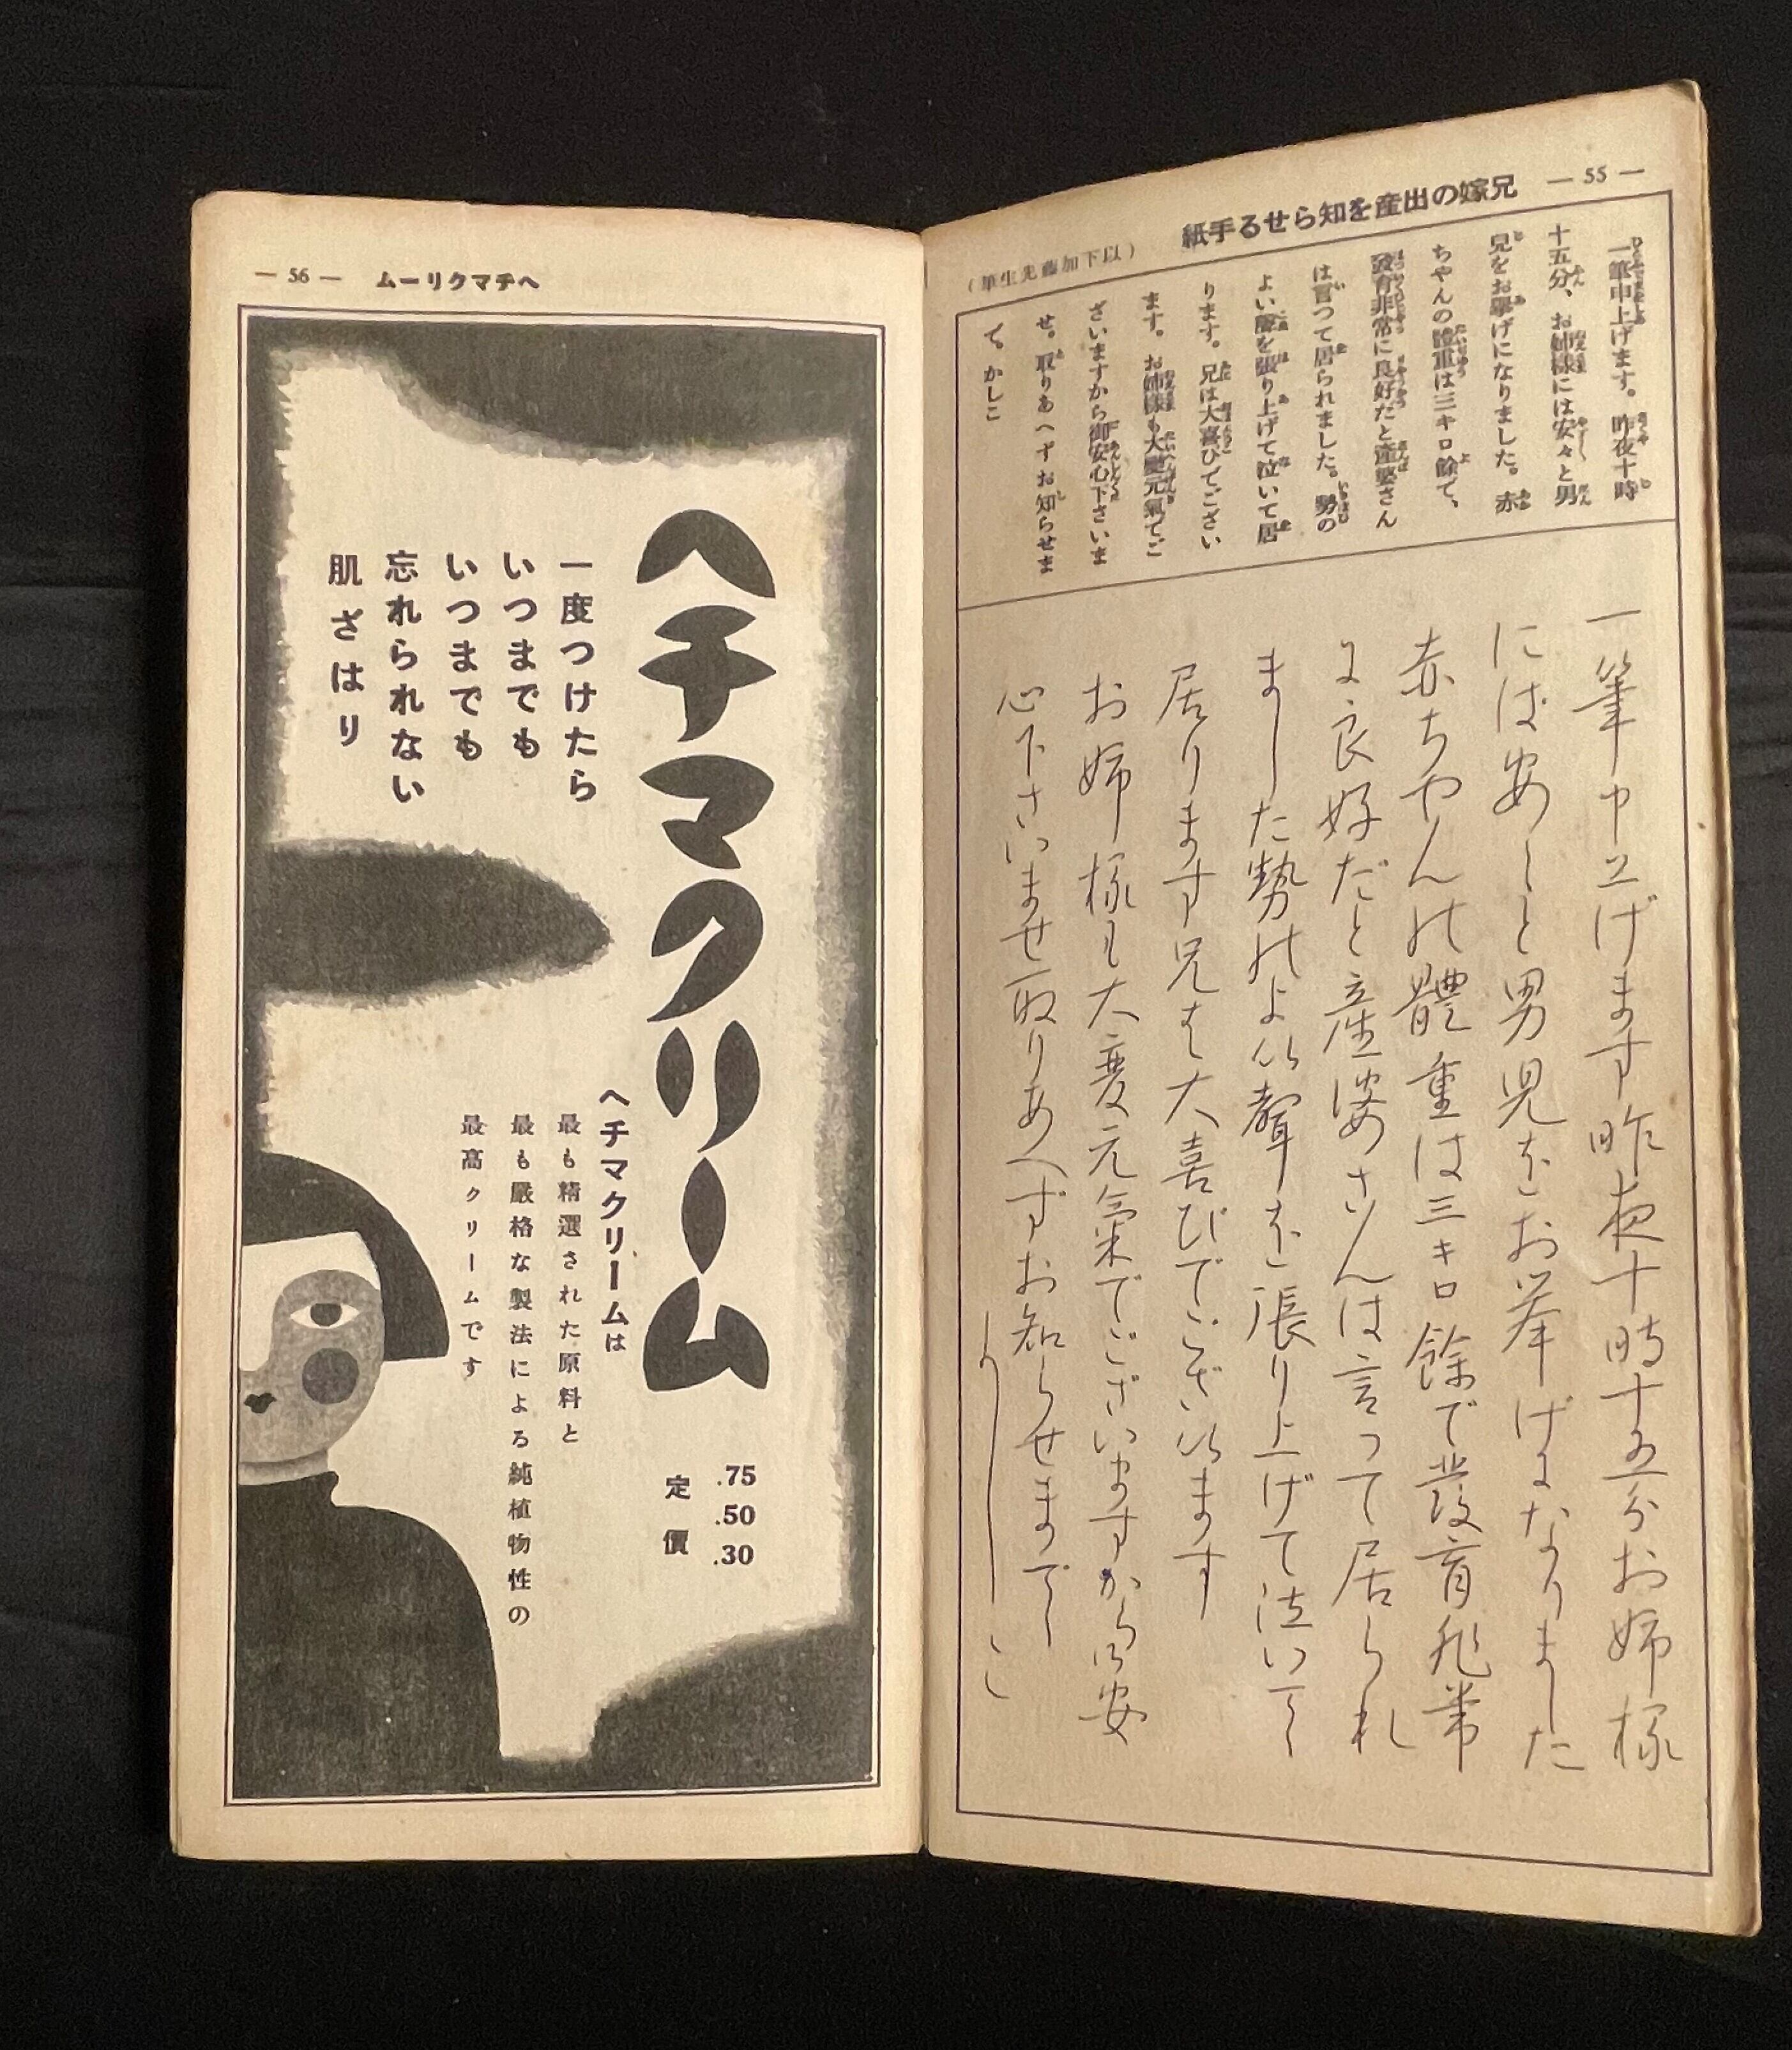 — 55 —
兄嫁の出産を知らせる手紙
（以下加藤先生筆）
一筆申上げます。昨夜十時
十五分、お姉樣には安々と男
兒をお擧げになりました。赤
ちやんの體重は三キロ餘で、
發育非常に良好だと産婆さん
は言つて居られました。勢の
よい聲を張り上げて泣いて居
ります。兄は大喜びでござい
ます。お姉樣も大變元氣でご
ざいますから御安心下さいま
せ。取りあへずお知らせま
で。かしこ
一筆申上げます昨夜十時十五分お姉樣
には安々と男児をお挙げになりました
赤ちやんの體重は三キロ餘で發育非常
に良好だと産婆さんは言つて居られ
ました勢のよい聲を張り上げて泣いて
居ります兄は大喜びでございます
お姉樣も大變元氣でございますから御安
心下さいませ取りあへずお知らせまで
かしこ
— 56 —
ヘチマクリーム
ヘチマクリーム
.75
.50
.30
定價
一度つけたら
いつまでも
いつまでも
忘れられない
肌ざはり
ヘチマクリームは
最も精選された原料と
最も嚴格な製法による純植物性の
最高クリームです